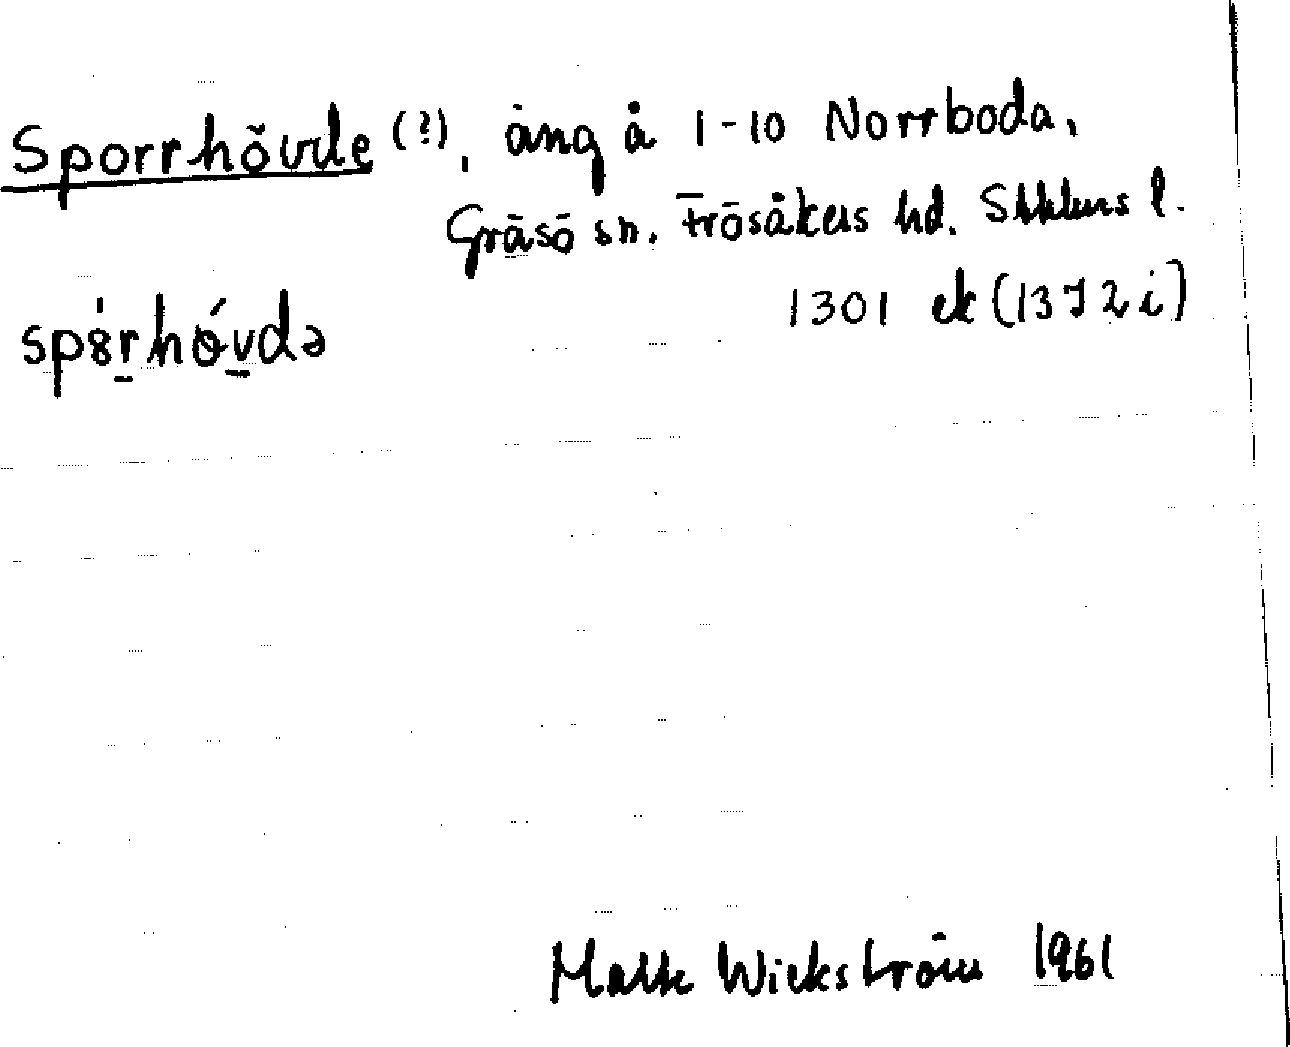 Sporrhövde (?), äng å 1-10 Norrboda,
Gräsö sn. Frösåkers hd. Sthlms l.
1301 ek (1372 i)
spȣ́rhǿvdə
Malte Wickström 1961